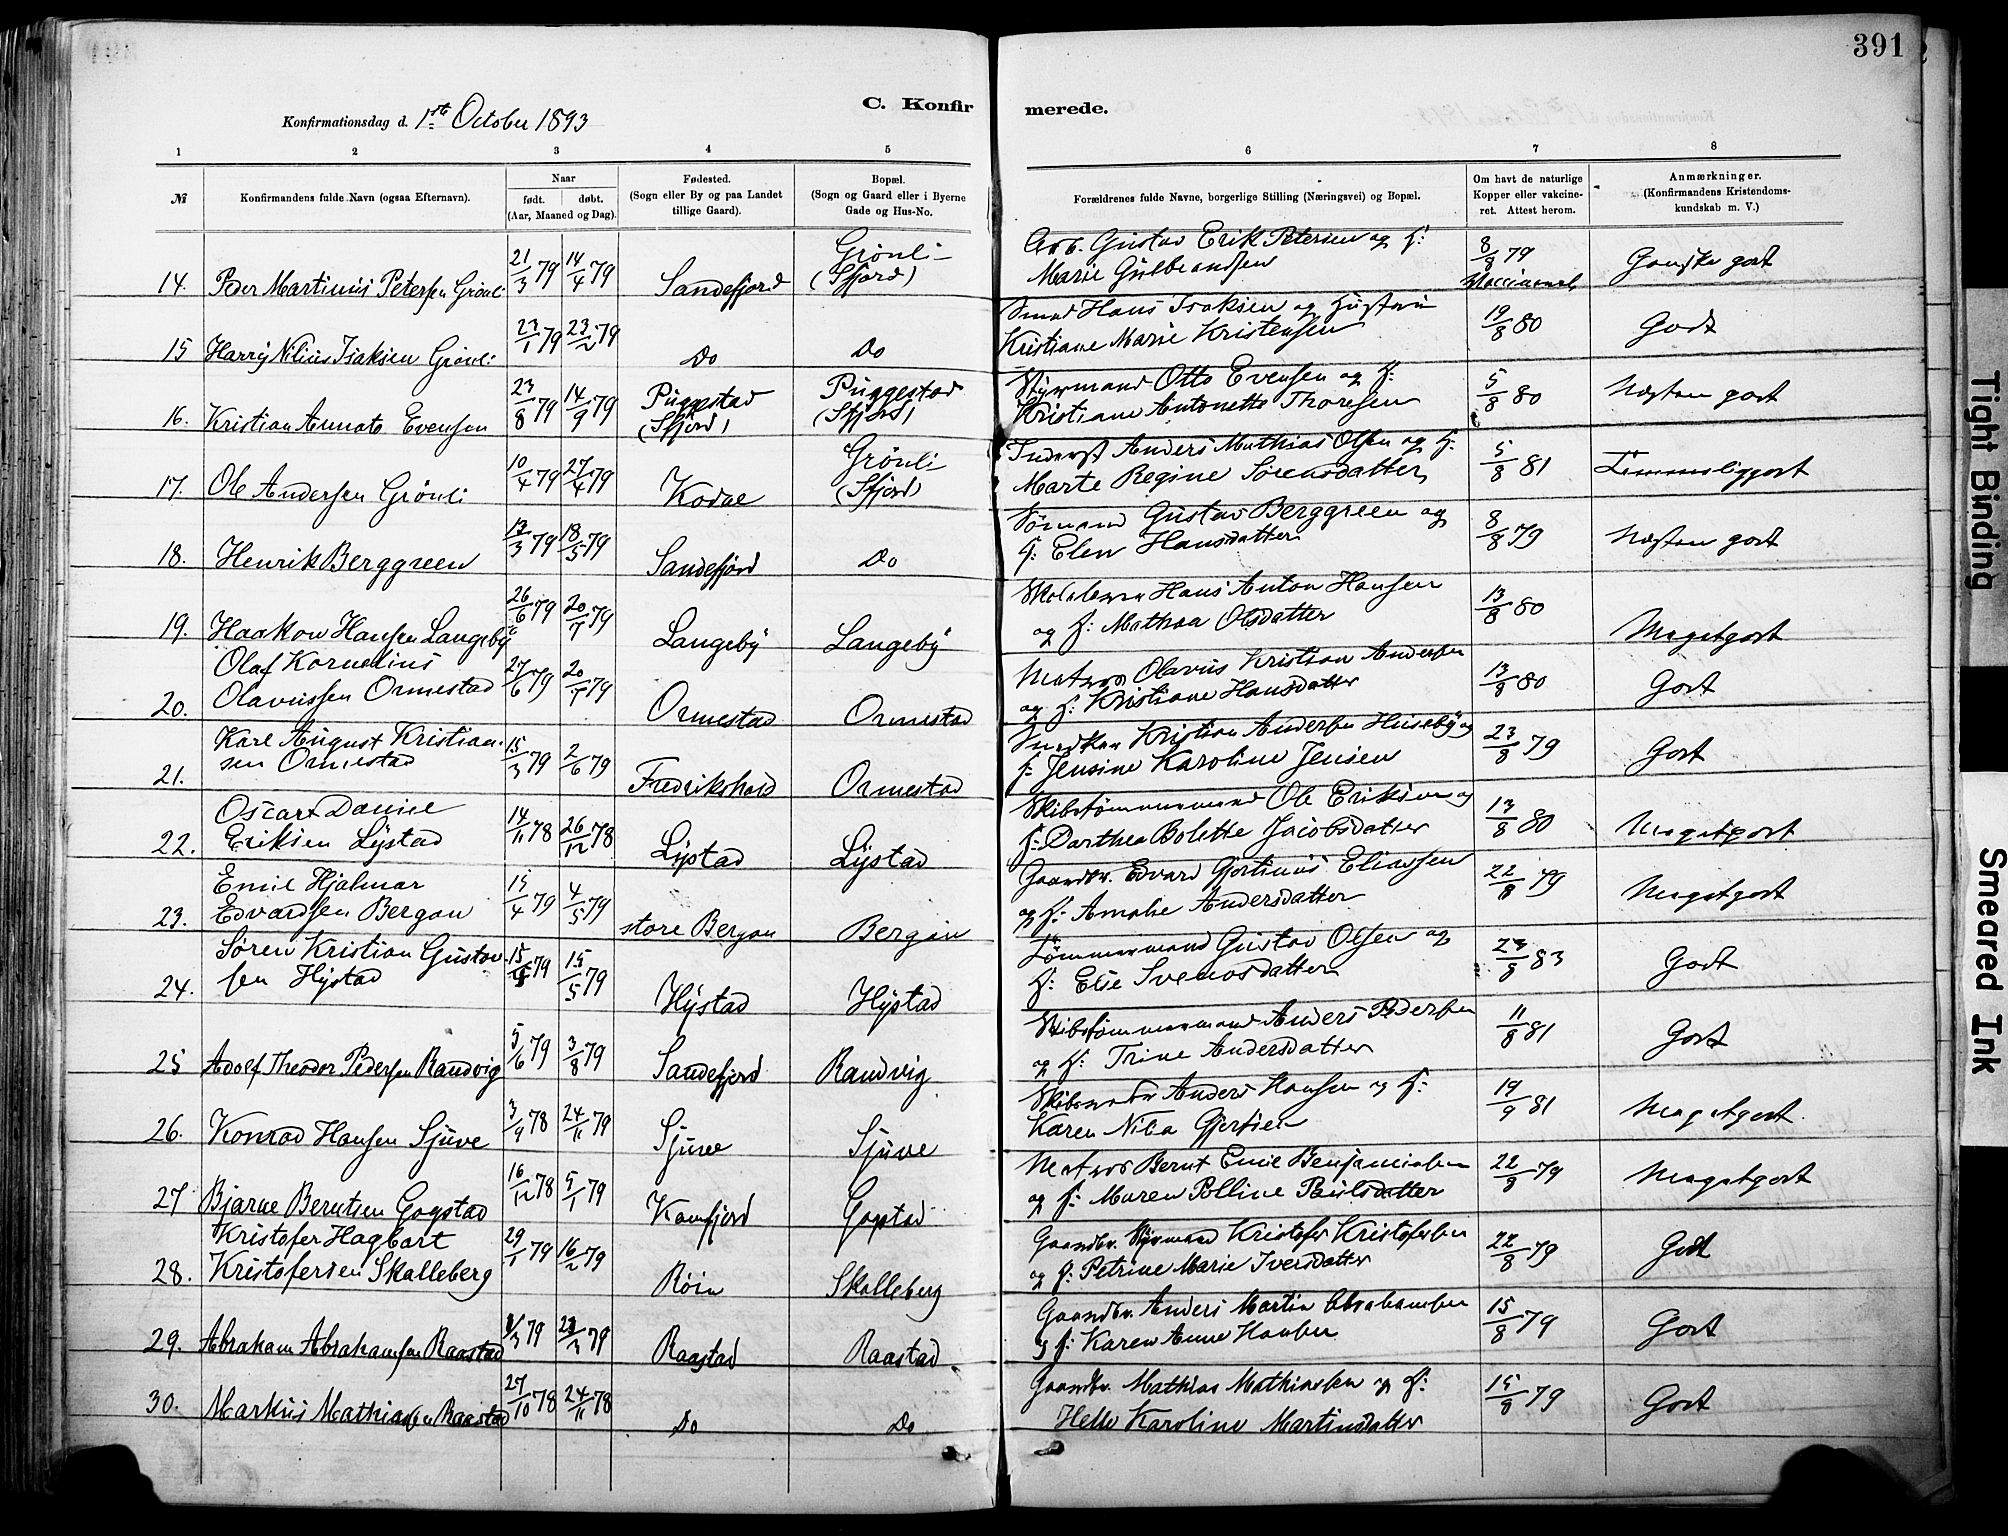 391
C. Konfirmerede.
Konfirmationsdag d. 1ste October 1893
1 2 3 4 5 6 7 8
№
Konfirmandens fulde Navn (ogsaa Efternavn).
Naar
født. døbt.
(Aar, Maaned og Dag).
Fødested.
(Sogn eller By og paa Landet
tillige Gaard).
Bopæl.
(Sogn og Gaard eller i Byerne
Gade og Hus-No.
Forældrenes fulde Navne, borgerlige Stilling (Næringsvei) og Bopæl.
Om havt de naturlige
Kopper eller vakcine-
ret. Attest herom.
Anmærkninger.
(Konfirmandens Kristendoms-
kundskab m. V.)
14. Peder Martinius Petersen Grönli 21/3 79 14/4 79 Sandefjord Grönli (Sfjord) Arb. Gustav Erik Petersen og H:
Marie Gulbrandsen 8/8 79 Ganske godt
15 Harry Nilius Isaksen Grönli 23/1 79 23/2 79 Do Do Smed Hans Isaksen og Hustru
Kristiane Marie Kristensen 19/8 80 Godt
16. Kristian Annato Evensen 23/8 79 14/9 79 Puggestad (Sfjord) Puggestad (Sfjord) Styrmand Otto Evensen og H:
Kristiane Antonette Thoresen 5/8 80 Næsten godt
17. Ole Andersen Grönli 10/4 79 27/4 79 Kodal Grönli (Sfjord) Inderst Anders Mathias Olsen og H:
Marte Regine Sörensdatter 5/8 81 Temmelig godt
18. Henrik Berggreen 13/3 79 18/5 79 Sandefjord Do Sömand Gustav Berggreen og
H: Elen Hansdatter 8/8 79 Næsten godt
19. Haakon Hansen Langeby 26/6 79 20/7 79 Langeby Langeby Hans Anton Hansen
og H: Mathea Olsdatter 13/8 80 Meget godt
20. Olaf Kornelius
Olaviussen Ormestad 27/6 79 20/7 79 Ormestad Ormestad Matros Olavus Kristian Andersen
og H: Kristiane Hansdatter 13/8 80 Godt
21. Karl August Kristian-
sen Ormestad 15/3 79 2/6 79 Fredrikshald Ormestad Snedker Kristian Andersen Huseby og
H: Jensine Karoline Jensen 23/8 79 Godt
22. Oscar Daniel
Eriksen Lystad 14/11 78 26/12 78 Lystad Lystad Skibstömmermand Ole Eriksen og
H: Dorthea Bolette Jacobsdatter 13/8 80 Meget godt
23. Emil Hjalmar
Edvardsen Bergan 15/4 79 4/5 79 store Bergan Bergan Gaardbr. Edvard Gjertinius Eliassen
og H: Amalie Andersdatter 22/8 79 Meget godt
24. Sören Kristian Gustav-
sen Hystad 15/4 79 15/5 79 Hystad Hystad Tömmermand Gustav Olsen og
H: Elise Svenosdatter 23/8 83 Godt
25 Adolf Theodor Pedersen Randvig 5/6 79 3/8 79 Sandefjord Randvig Skibstömmermand Anders Pedersen
og H: Trine Andersdatter 11/8 81 Godt
26. Konrad Hansen Sjuve 3/9 78 24/11 79 Sjuve Sjuve Anders Hansen og H:
Karen Gjertsen 19/9 81 Meget godt.
27 Bjarne Berntsen Gogstad 16/12 78 5/1 79 Kamfjord Gogstad Matros Bernt Emil Benjaminsen
og H: Maren Polline Paulsdatter 22/8 79 Meget godt
28. Kristofer Hagbart
Kristofersen Skalleberg 29/1 79 16/2 79 Röin Skalleberg Gaardbr. Styrmand Kristofer Kristofersen
og H: Petrine Marie Iversdatter 22/8 79 Godt
29. Abraham Abrahamsen Raastad /3 79 23/3 79 Raastad Raastad Gaardbr. Anders Martin Abrahamsen
og H: Karen Anne Hansen 15/8 79 Godt
30. Markus Mathiassen Raastad 27/10 78 24/11 78 Do Do Gaardbr. Mathias Mathiassen og H:
Helle Karoline Martinsdatter 15/8 79 Godt
Tight Binding
Smeared Ink